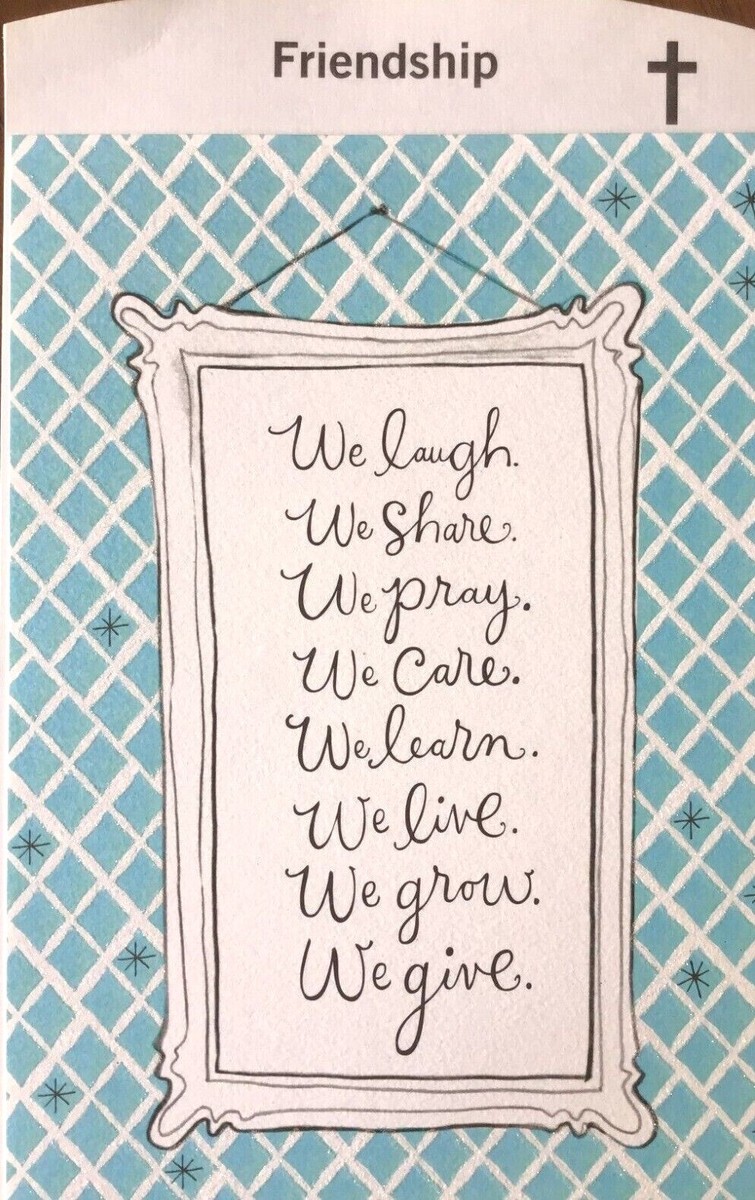 Friendship
We laugh.
We share.
We pray.
We Care.
We learn.
We live.
We grow.
We give.